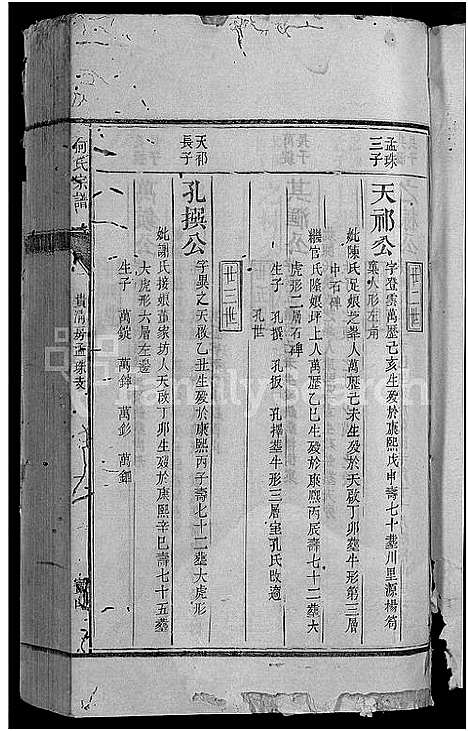 廿二世
孟珠三子
天祁公
字登雲萬歷己亥生歿於康熙戊申壽七十塟川里源楊筒
窠人形左角
妣陳氏足娘之峯人萬歷己未生歿於天啟丁卯塟牛形第三層
中石碑
繼官氏隆娘坪上人萬歷乙巳生歿於康熙丙辰壽七十二塟大
虎形二層石碑
生子 孔撰 孔扳 孔擇塟牛形三層室孔氏改適
孔世
廿三世
天祁長子
孔撰公
字異之天啟乙丑生歿於康熙丙子壽七十二塟大虎形
妣謝氏接娘茜家坊人天啟丁卯生歿於康熙辛巳壽七十五塟
大虎形六層左邊
生子 萬錠 萬錞 萬彭 萬鎦
何氏宗譜
貴清房孟珠支
FamilySearch